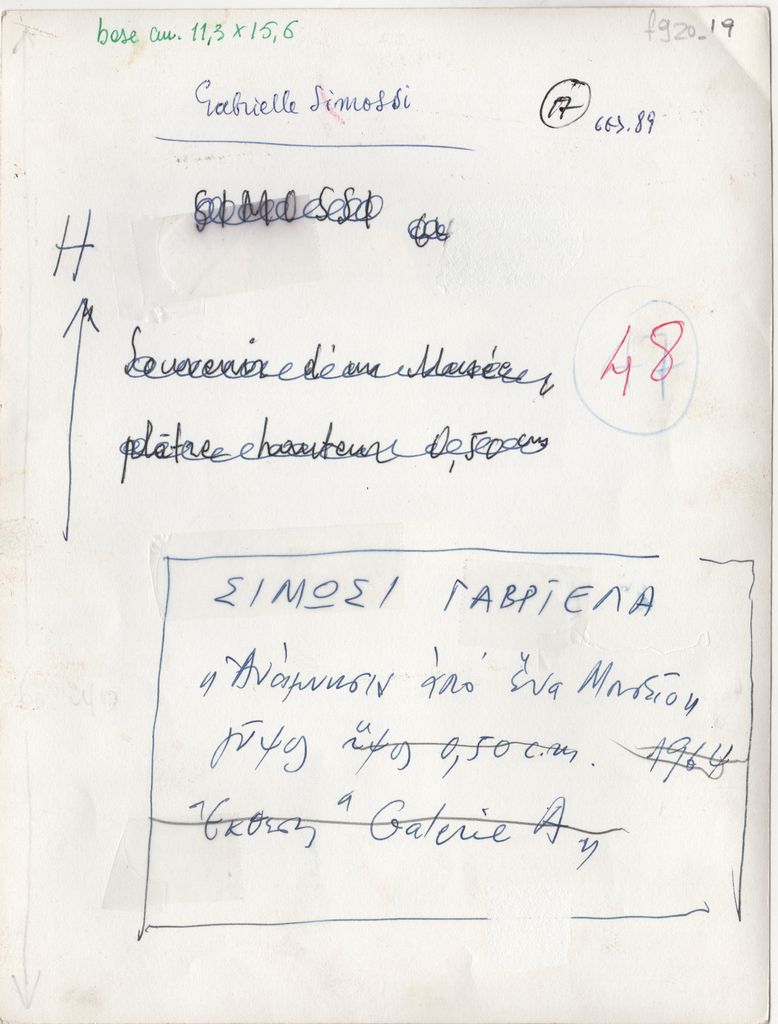 base αν. 11,3 x 15,6
f920_19
Gabrielle Simossi
17
σελ. 89
SIMOSSI
H
Souvenir d'un Musée
48
plâtre hauteur 0,50 cm
ΣΙΜΩΣΙ ΓΑΒΡΙΕΛΑ
"Ἀνάμνησιν ἀπό ἕνα Μουσεῖο"
γύψος ὕψος 0,50 c.m. 1964
Ἔκθεση "Galerie A"